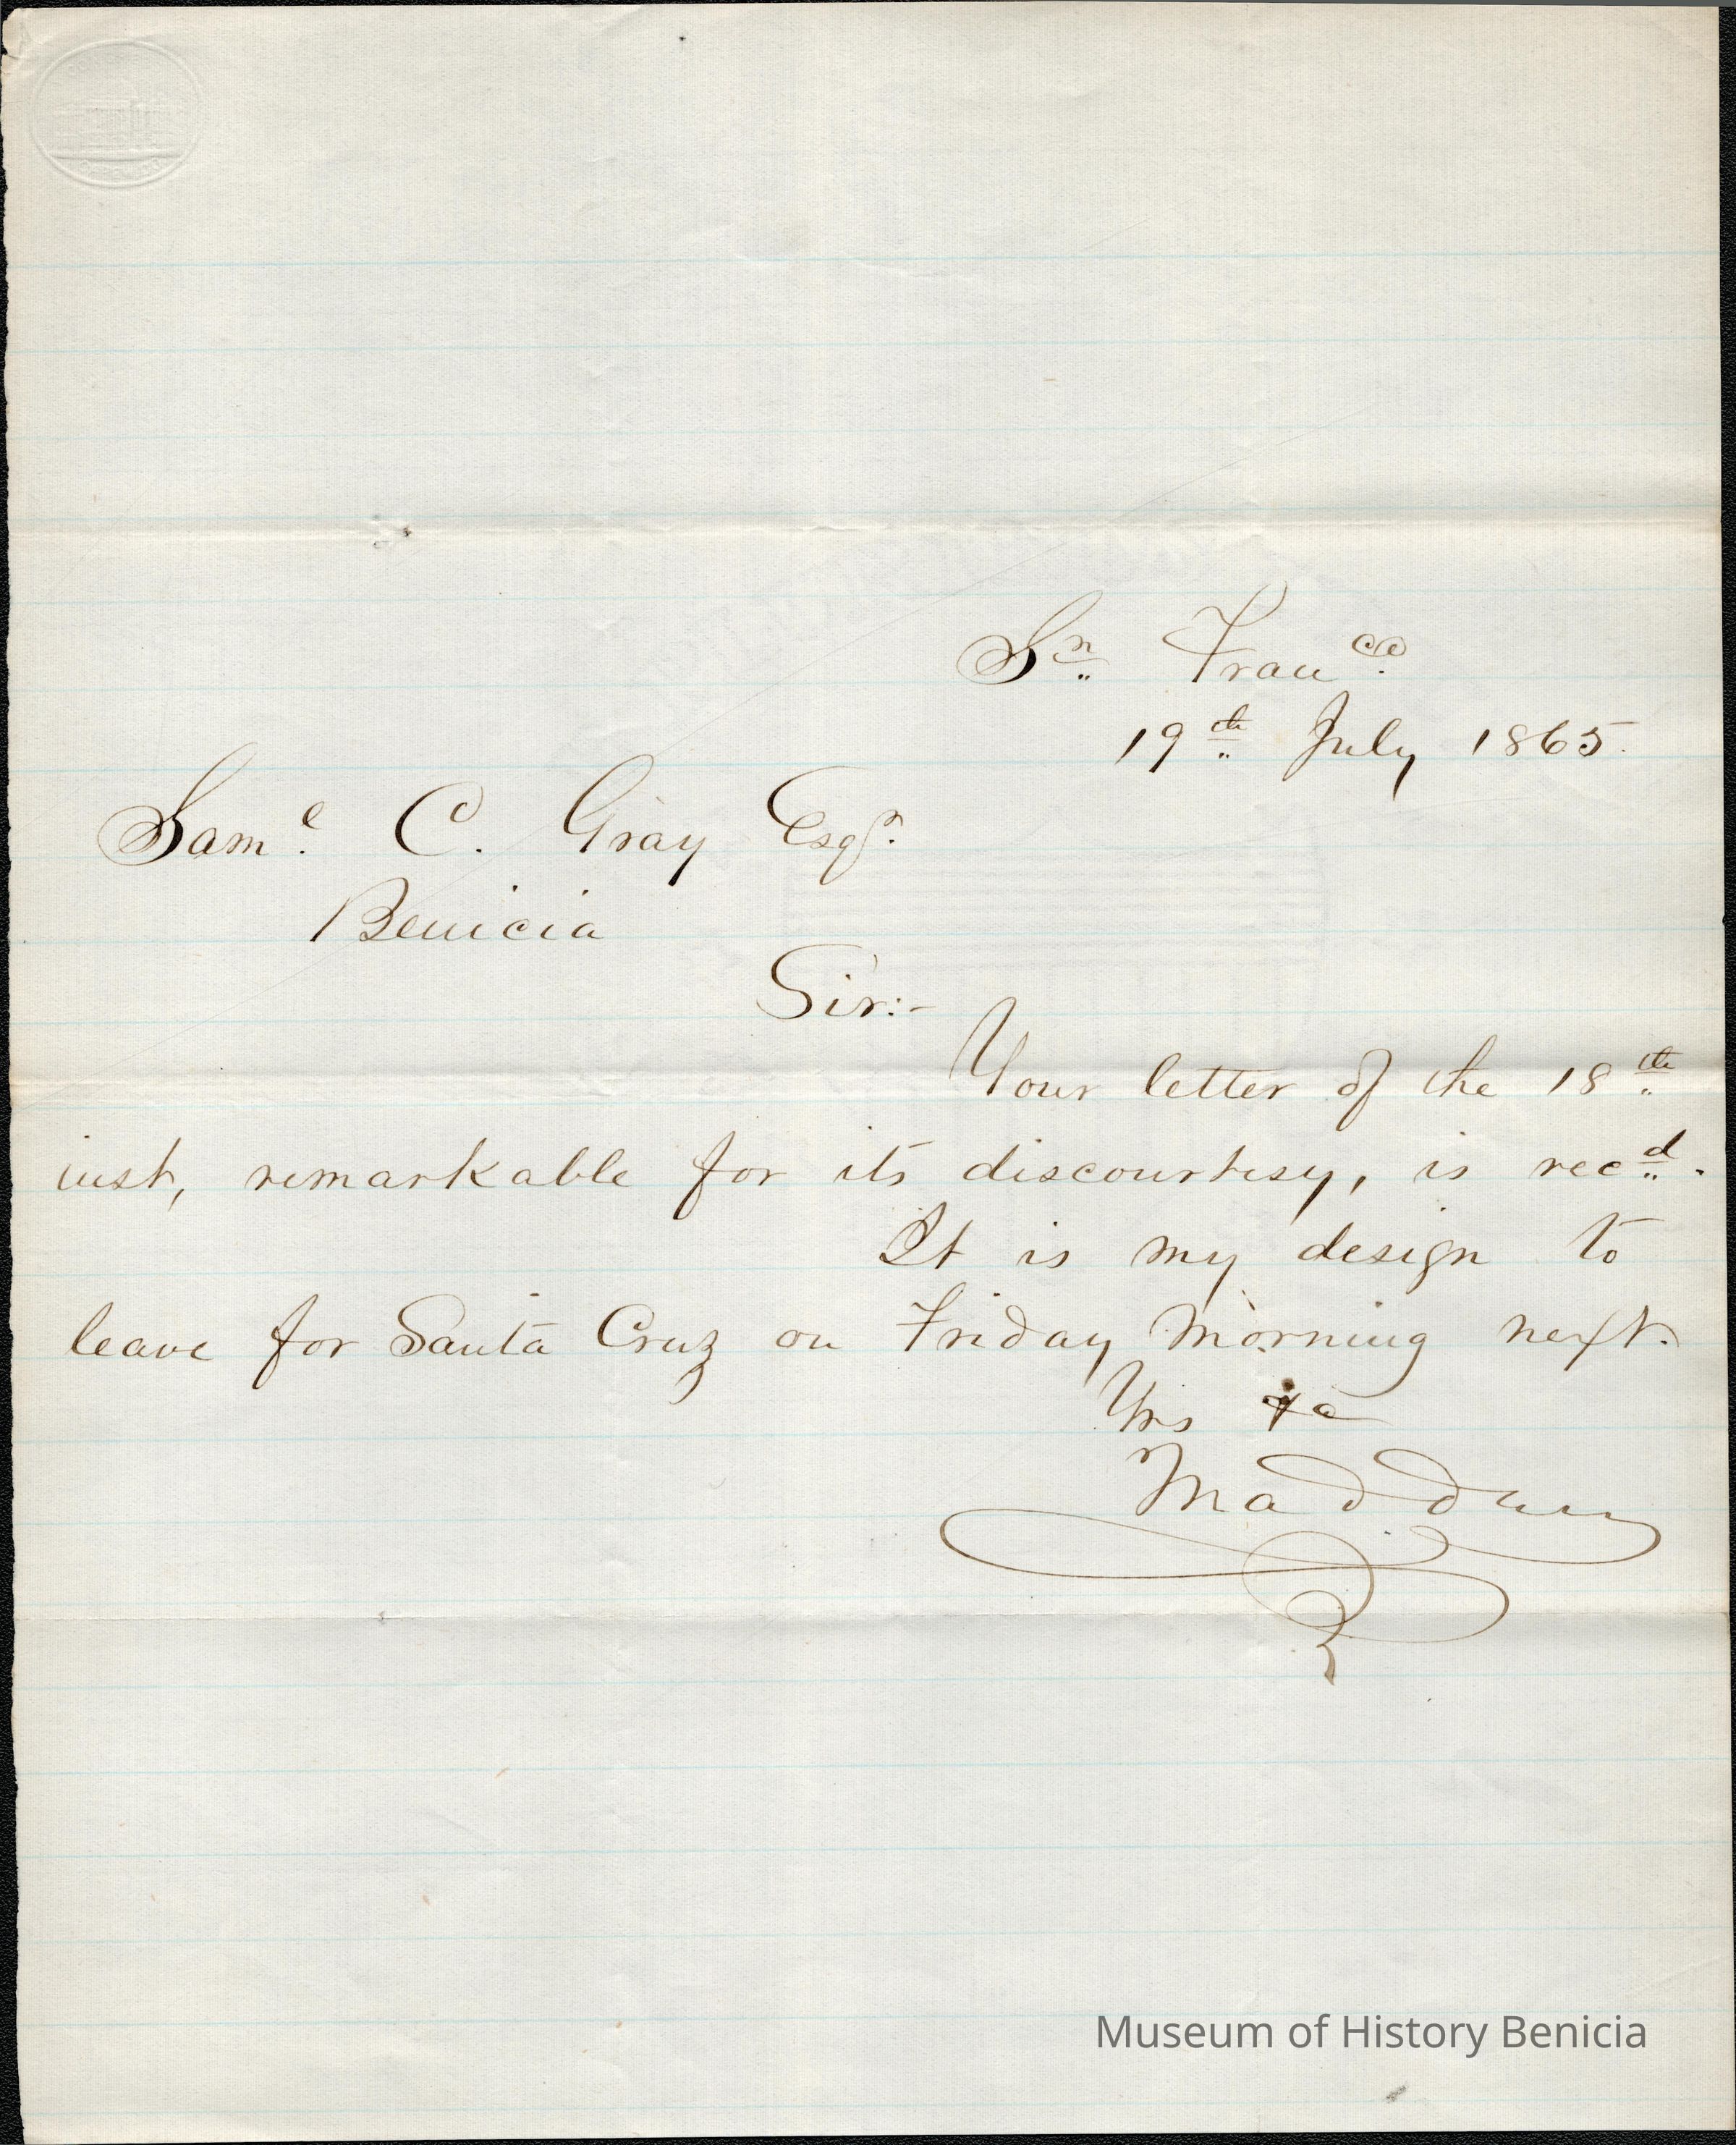 Sn Franco
19th July 1865.
Saml. C. Gray Esqr.
Benicia
Sir:-
Your letter of the 18th
inst, remarkable for its discourtesy, is recd.
It is my design to
leave for Santa Cruz on Friday morning next.
Yrs &c
Madden
Museum of History Benicia